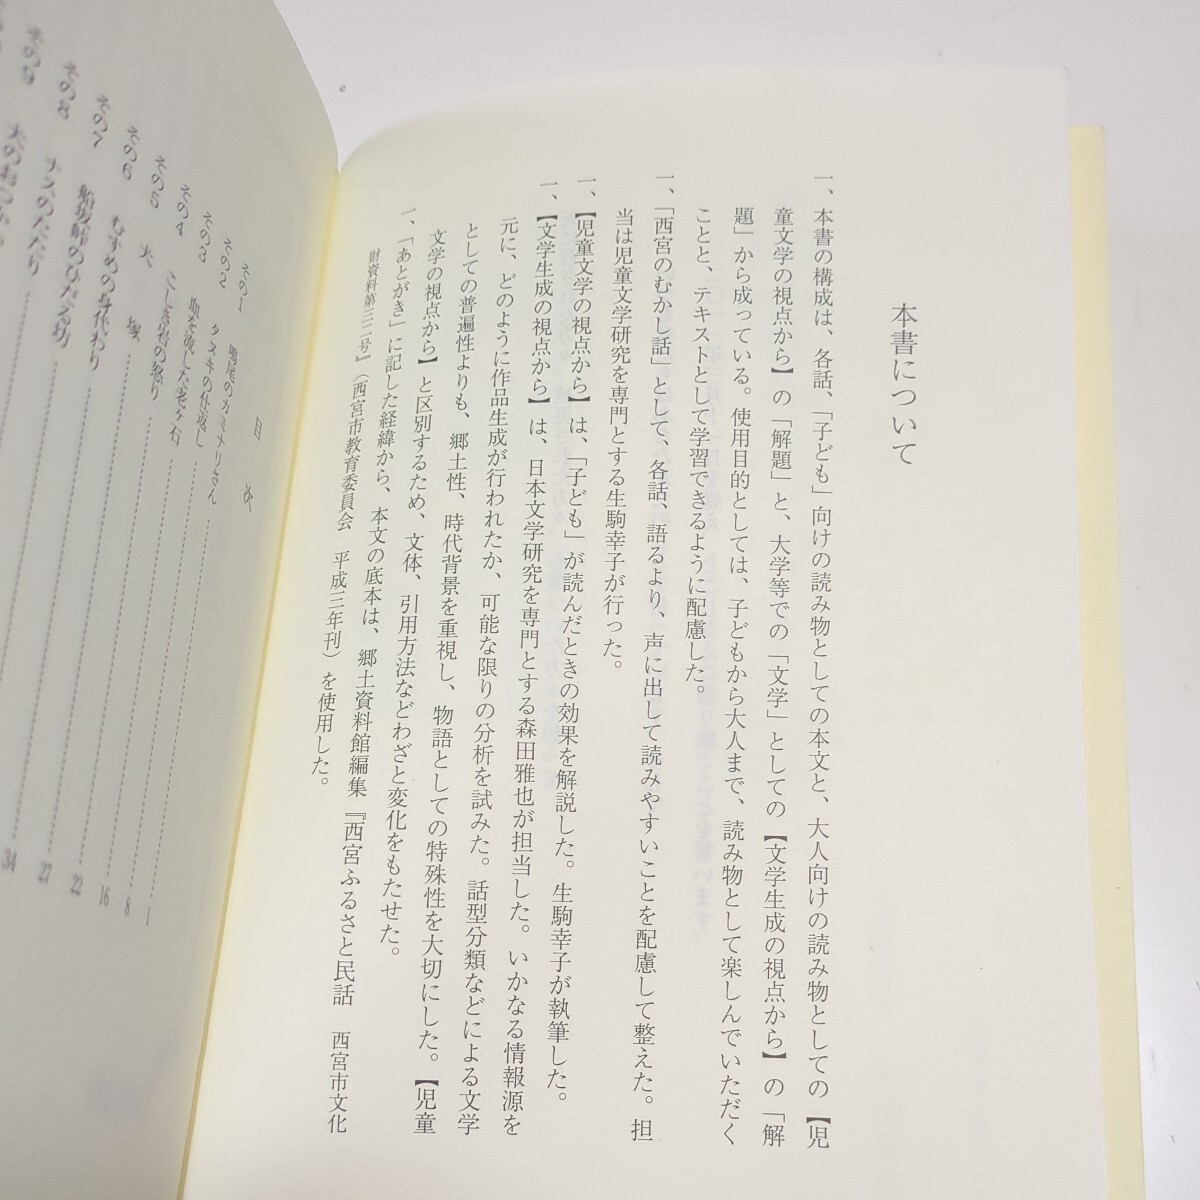 本書について
一、本書の構成は、各話、「子ども」向けの読み物としての本文と、大人向けの読み物としての【児
童文学の視点から】の「解題」と、大学等での「文学」としての【文学生成の視点から】の「解
題」から成っている。使用目的としては、子どもから大人まで、読み物として楽しんでいただく
ことと、テキストとして学習できるように配慮した。
一、「西宮のむかし話」として、各話、語るより、声に出して読みやすいことを配慮して整えた。担
当は児童文学研究を専門とする生駒幸子が行った。
一、【児童文学の視点から】は、「子ども」が読んだときの効果を解説した。生駒幸子が執筆した。
一、【文学生成の視点から】は、日本文学研究を専門とする森田雅也が担当した。いかなる情報源を
元に、どのように作品生成が行われたか、可能な限りの分析を試みた。話型分類などによる文学
としての普遍性よりも、郷土性、時代背景を重視し、物語としての特殊性を大切にした。【児童
文学の視点から】と区別するため、文体、引用方法などわざと変化をもたせた。
一、「あとがき」に記した経緯から、本文の底本は、郷土資料館編集『西宮ふるさと民話 西宮市文化
財資料第三二号』（西宮市教育委員会 平成三年刊）を使用した。
目次
その1 鳴尾のカミナリさん 1
その2 タヌキの仕返し 8
その3 血を流した老ヶ石 16
その4 こしき岩の怒り 22
その5 犬塚 27
その6 むすめの身代わり 34
その7 船坂峠のひだる坊
その8 ナスのたたり
その9